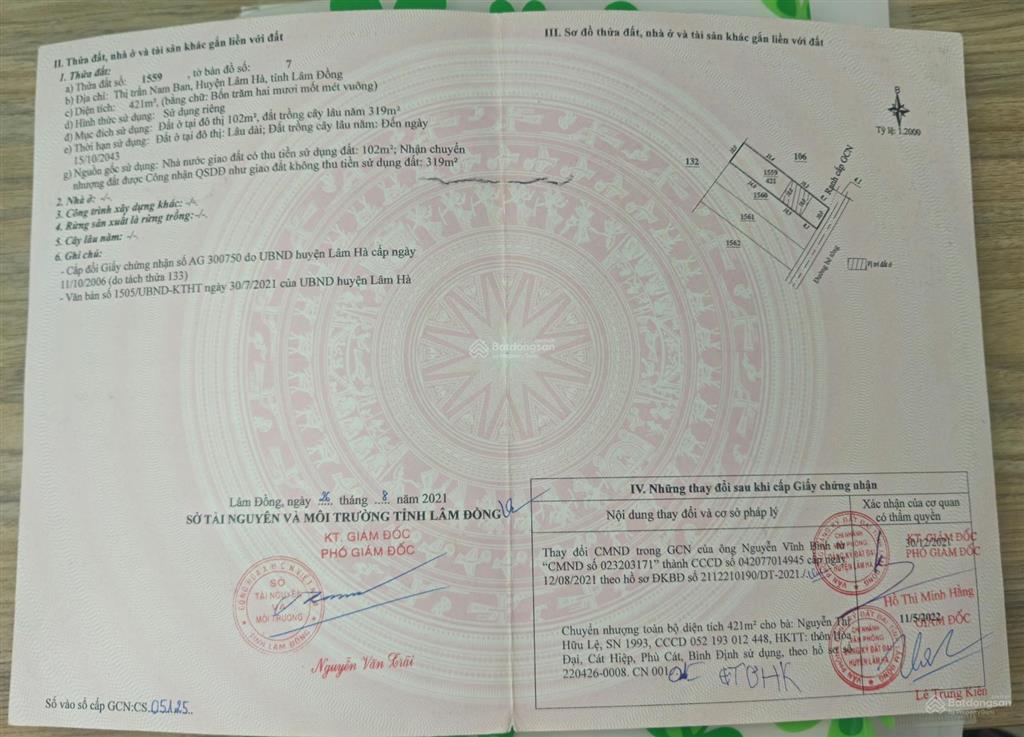 II. Thửa đất, nhà ở và tài sản khác gắn liền với đất
1. Thửa đất:
a) Thửa đất số: 1559 , tờ bản đồ số: 7
b) Địa chỉ: Thị trấn Nam Ban, Huyện Lâm Hà, tỉnh Lâm Đồng
c) Diện tích: 421m², (bằng chữ: Bốn trăm hai mươi mốt mét vuông)
d) Hình thức sử dụng: Sử dụng riêng
đ) Mục đích sử dụng: Đất ở tại đô thị 102m², đất trồng cây lâu năm 319m²
e) Thời hạn sử dụng: Đất ở tại đô thị: Lâu dài; Đất trồng cây lâu năm: Đến ngày
15/10/2043
g) Nguồn gốc sử dụng: Nhà nước giao đất có thu tiền sử dụng đất: 102m²; Nhận chuyển
nhượng đất được Công nhận QSDĐ như giao đất không thu tiền sử dụng đất: 319m²
2. Nhà ở: -/-
3. Công trình xây dựng khác: -/-
4. Rừng sản xuất là rừng trồng:-/-
5. Cây lâu năm: -/-
6. Ghi chú:
- Cấp đổi Giấy chứng nhận số AG 300750 do UBND huyện Lâm Hà cấp ngày
11/10/2006 (do tách thửa 133)
- Văn bản số 1505/UBND-KTHT ngày 30/7/2021 của UBND huyện Lâm Hà
Lâm Đồng, ngày 26 tháng 8 năm 2021
SỞ TÀI NGUYÊN VÀ MÔI TRƯỜNG TỈNH LÂM ĐỒNG
KT. GIÁM ĐỐC
PHÓ GIÁM ĐỐC
SỞ
TÀI NGUYÊN
VÀ
MÔI TRƯỜNG
TỈNH LÂM ĐỒNG
Nguyễn Văn Trãi
Số vào sổ cấp GCN:CS.05125..
III. Sơ đồ thửa đất, nhà ở và tài sản khác gắn liền với đất
B
Tỷ lệ: 1:2000
132
106
1559
421
1560
1561
1562
Ranh cấp GCN
Đường bê tông
Vị trí đất ở
Batdongsan
IV. Những thay đổi sau khi cấp Giấy chứng nhận
Nội dung thay đổi và cơ sở pháp lý
Xác nhận của cơ quan
có thẩm quyền
Thay đổi CMND trong GCN của ông Nguyễn Vĩnh Bình từ
"CMND số 023203171" thành CCCD số 042077014945 cấp ngày
12/08/2021 theo hồ sơ ĐKBĐ số 2112210190/DT-2021
30/12/2021
KT. GIÁM ĐỐC
PHÓ GIÁM ĐỐC
CHI NHÁNH
VĂN PHÒNG
ĐĂNG KÝ ĐẤT ĐAI
HUYỆN LÂM HÀ
Hồ Thị Minh Hằng
Chuyển nhượng toàn bộ diện tích 421m² cho bà: Nguyễn Thị
Hữu Lệ, SN 1993, CCCD 052 193 012 448, HKTT: thôn Hóa
Đại, Cát Hiệp, Phù Cát, Bình Định sử dụng, theo hồ sơ số
220426-0008. CN 001
11/5/2022
GIÁM ĐỐC
CHI NHÁNH
VĂN PHÒNG
ĐĂNG KÝ ĐẤT ĐAI
HUYỆN LÂM HÀ
Lê Trung Kiên
Batdongsan